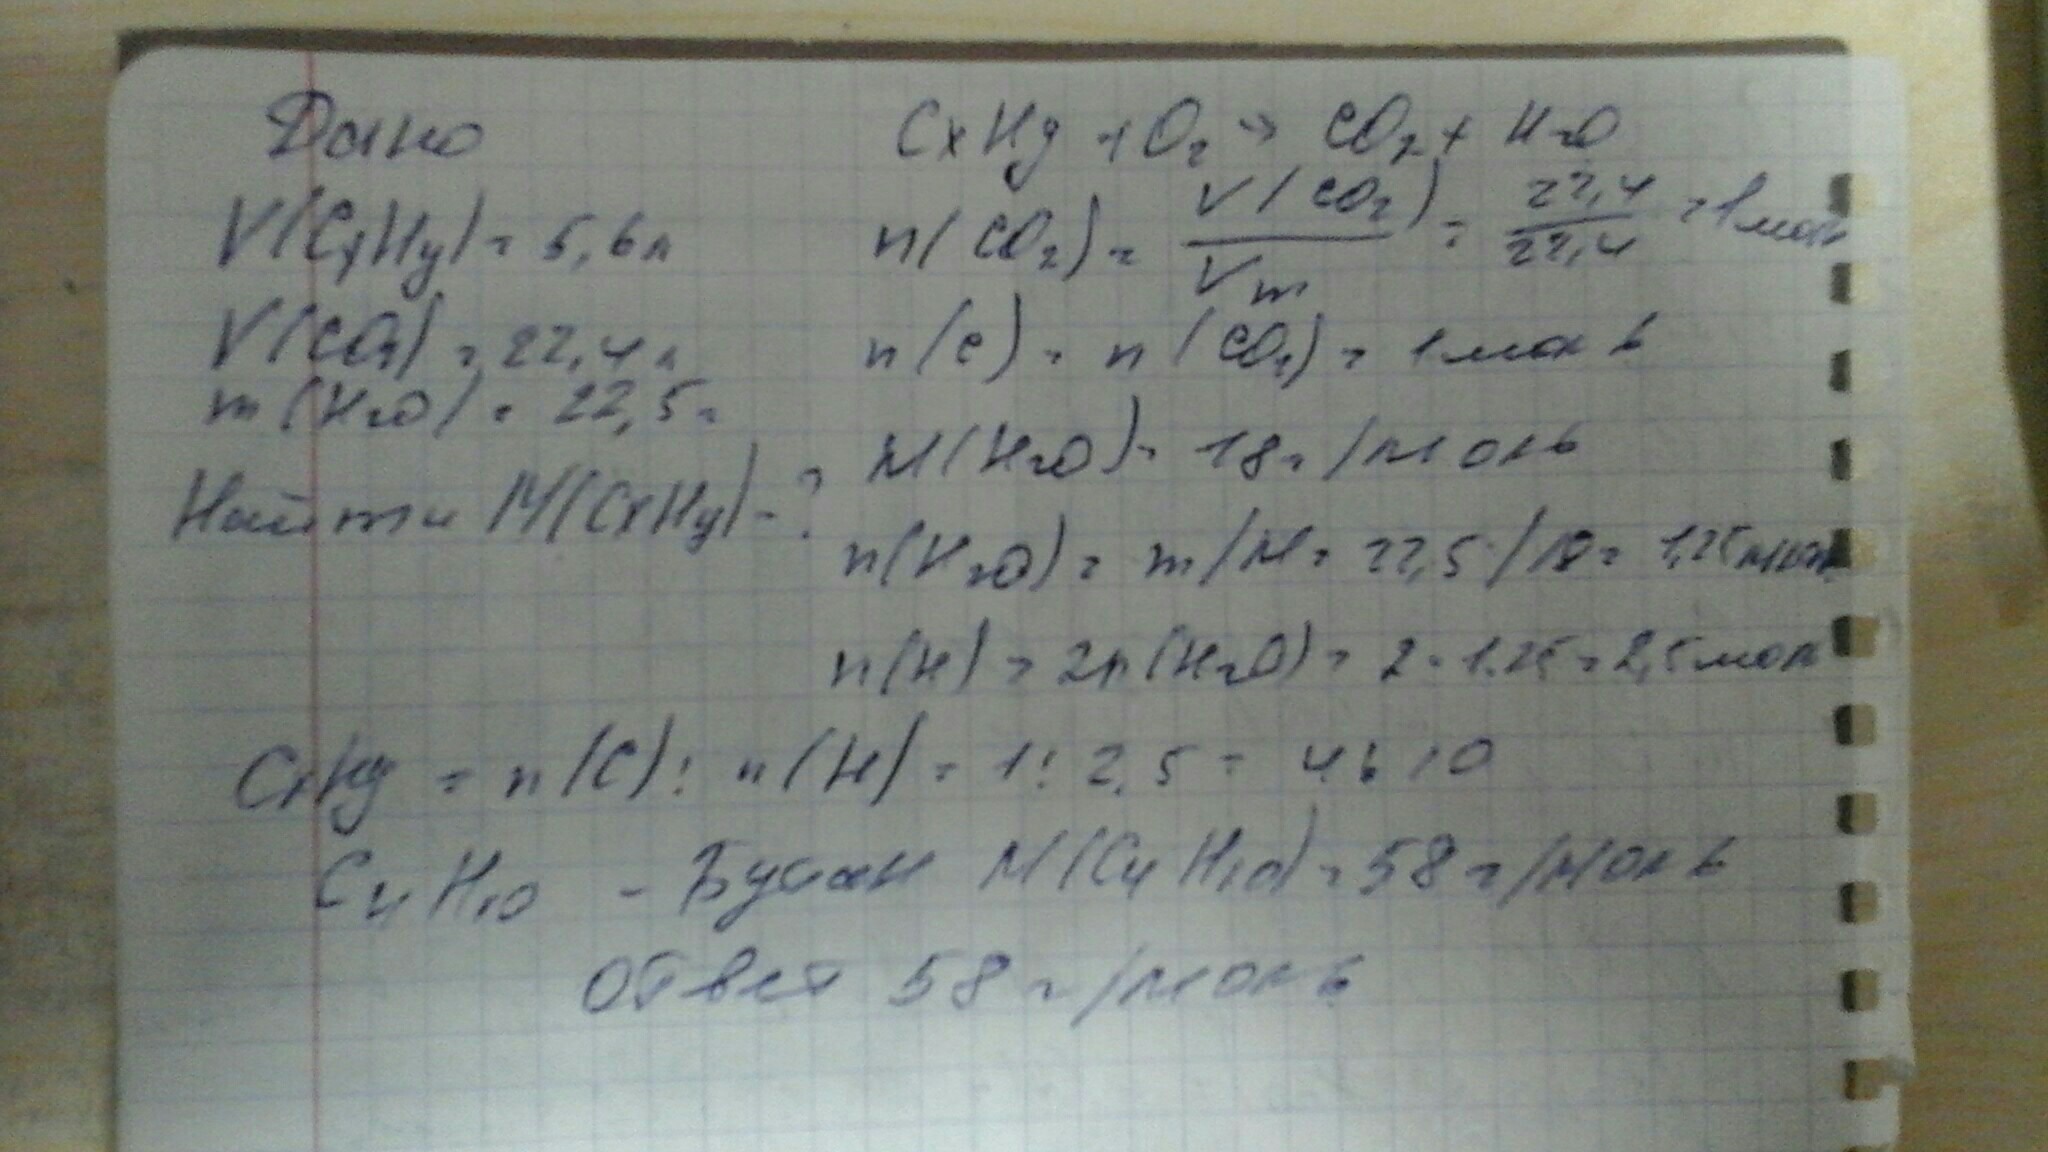 Дано
V(CxHy) = 5,6л
V(CO2) = 22,4л
m(H2O) = 22,5г
Найти M(CxHy) - ?
CxHy + O2 → CO2 + H2O
n(CO2) = V(CO2)/Vm = 22,4/22,4 = 1моль
n(C) = n(CO2) = 1моль
M(H2O) = 18г/моль
n(H2O) = m/M = 22,5/18 = 1,25моль
n(H) = 2n(H2O) = 2·1.25 = 2,5моль
CxHy = n(C) : n(H) = 1 : 2,5 = 4 : 10
C4H10 - Бутан M(C4H10) = 58г/моль
Ответ 58г/моль